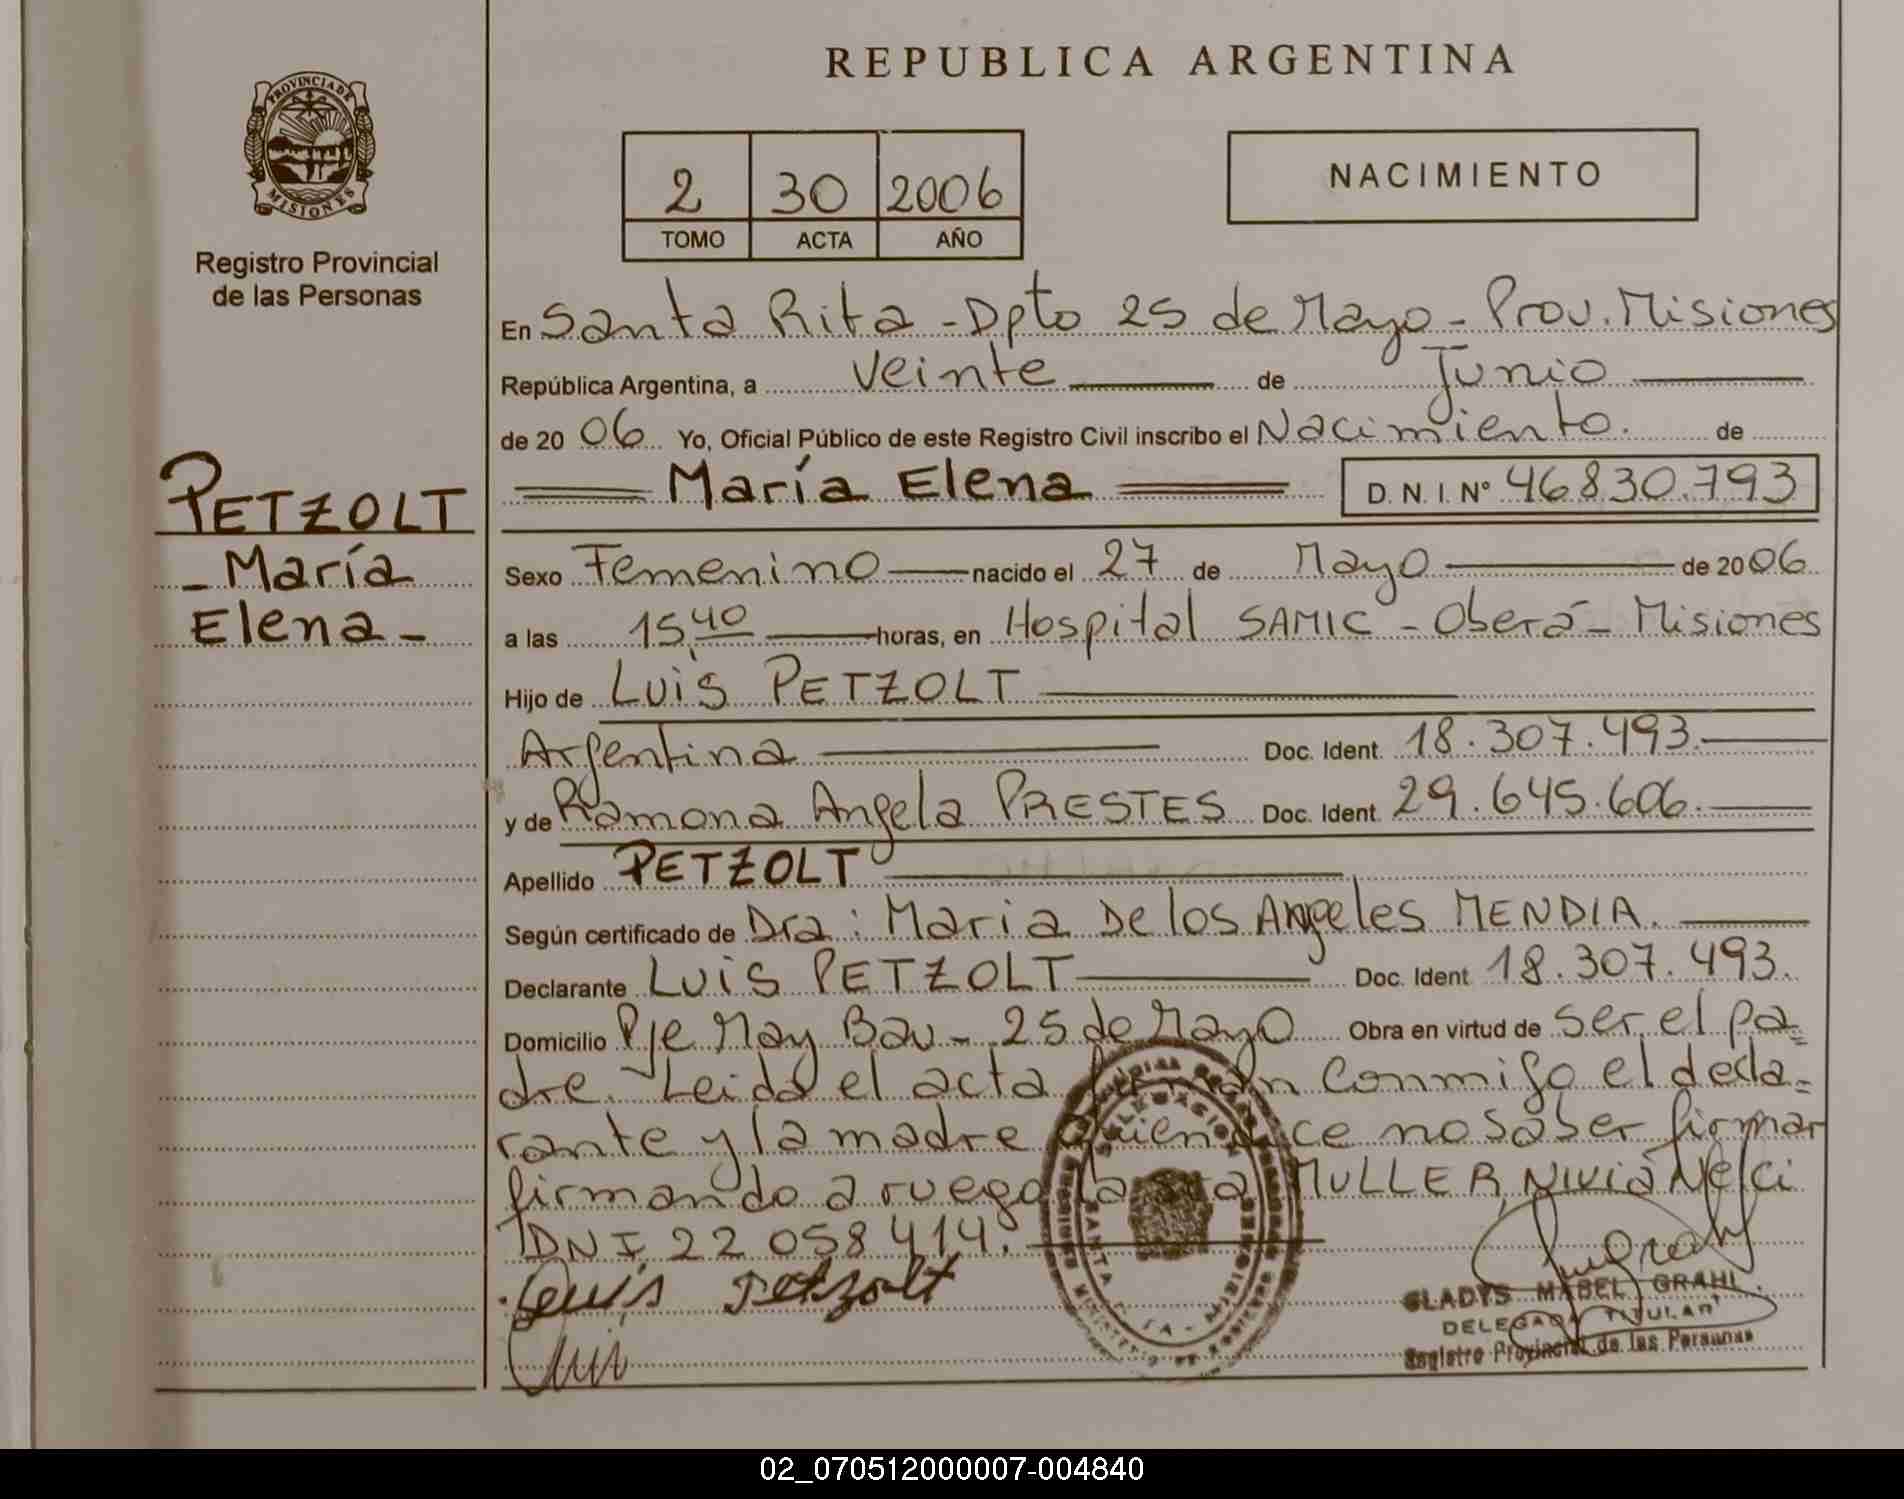 REPUBLICA ARGENTINA
PROVINCIA DE
MISIONES
Registro Provincial
de las Personas
2 30 2006
TOMO ACTA AÑO
NACIMIENTO
En Santa Rita - Dpto 25 de Mayo - Prov. Misiones
República Argentina, a Veinte de Junio
de 2006 Yo, Oficial Público de este Registro Civil inscribo el Nacimiento. de
María Elena D. N. I. Nº 46.830.793
PETZOLT
- María
Elena -
Sexo Femenino nacido el 27 de Mayo de 2006
a las 15,40 horas, en Hospital SAMIC - Oberá - Misiones
Hijo de Luis PETZOLT
Argentina Doc. Ident. 18.307.493.
y de Ramona Angela PRESTES Doc. Ident. 29.645.606.
Apellido PETZOLT
Según certificado de Dra: Maria De los Angeles MENDIA.
Declarante Luis PETZOLT Doc. Ident 18.307.493.
Domicilio Pje May Bau - 25 de Mayo Obra en virtud de ser el pa=
dre. Leida el acta firman conmigo el decla=
rante y la madre quien dice no saber firmar
firmando a ruego la Sra MULLER, Nivia Nelci
DNI 22 058 414.
Luis Petzolt
GLADYS MABEL GRAHL
DELEGADA TITULAR
Registro Provincial de las Personas
DELEGACION
SANTA RITA
02_070512000007-004840